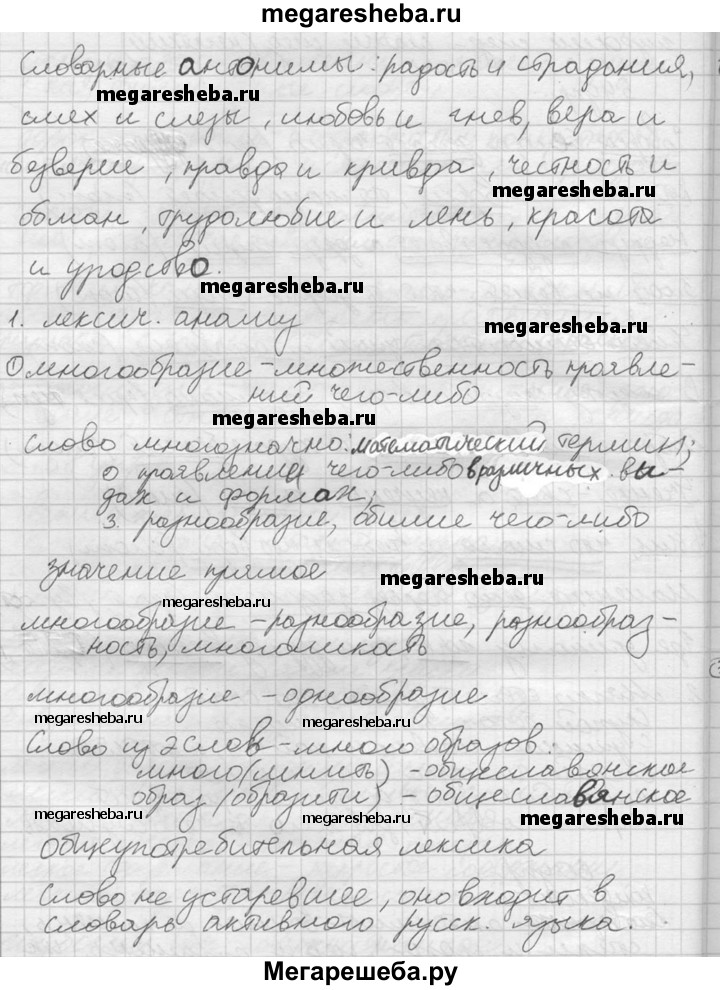 megaresheba.ru
Словарные антонимы: радость и страдания,
megaresheba.ru
смех и слезы, любовь и гнев, вера и
безверие, правда и кривда, честность и
megaresheba.ru
обман, трудолюбие и лень, красота
и уродство.
megaresheba.ru
1. лексич. анализ
megaresheba.ru
① многообразие - множественность проявле-
ний чего-либо
megaresheba.ru
слово многозначно: математический термин;
о проявлении чего-либо в различных ви-
дах и формах;
3. разнообразие, обилие чего-либо
значение прямое
megaresheba.ru
megaresheba.ru
многообразие - разнообразие, разнообраз-
ность, многоликость
многообразие - однообразие
megaresheba.ru megaresheba.ru megaresheba.ru
Слово из 2 слов - много образов:
много () - общеславянское
образ (образити) - общеславянское
megaresheba.ru megaresheba.ru megaresheba.ru
общеупотребительная лексика
Слово не устаревшее, оно входит в
словарь активного русск. языка.
megaresheba.ru megaresheba.ru megaresheba.ru
Мегарешеба.ру